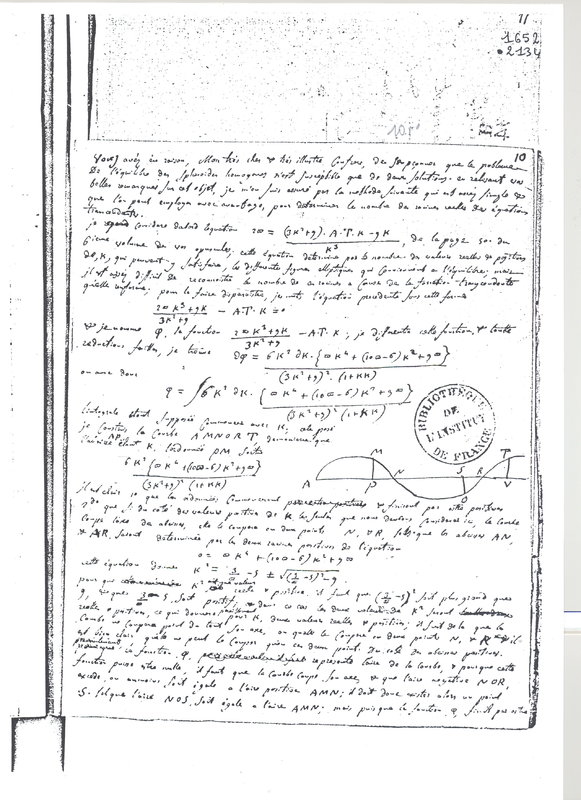 11
1652
2134
10
Vous avés eu raison, Mon très cher & très illustre Confrere, de soupçonner que le problème
De l'équilibre des spheroides homogenes n'est susceptible que de deux solutions. en relisant vos
belles remarques sur cet objet, je m'en suis assuré par la methode suivante qui est assés simple &
que l'on peut employer avec avantage, pour determiner le nombre des racines reelles des équations
transcendantes.
je considere d'abord l'equation 2ω = (3K²+9).A.T.K-9K / K³, de la page 50 du
6ieme volume de vos opuscules; cette équation determine par le nombre des valeurs reelles & positives
de K, qui peuvent y satisfaire, les differentes figures elliptiques qui conviennent a l'équilibre; mais
il est assés difficile de reconnoitre le nombre de ces racines a cause de la fonction transcendante
qu'elle renferme; pour la faire disparoitre, je mets l'équation precedente sous cette forme
2ωK³+9K / 3K²+9 - A.T.K = 0
& je nomme φ, la fonction 2ωK³+9K / 3K²+9 - A.T.K; je differentie cette fonction, & toutes
reductions faites, je trouve dφ = 6K²dK.{ωK⁴+(10ω-6)K²+9ω} / (3K²+9)².(1+KK)
ou aura donc
φ = ∫6K²dK.{ωK⁴+(10ω-6)K²+9ω} / (3K²+9)²(1+KK)
l'integrale étant supposée Commencer avec K, cela posé
je construis la Courbe AMNORT, de maniere que
l'abscisse AP étant K, l'ordonnée PM soit
6K²{ωK⁴+(10ω-6)K²+9ω} / (3K²+9)²(1+KK)
A
M
P
N
S
O
R
T
V
BIBLIOTHÈQUE
DE
L'INSTITUT
DE FRANCE
Il est clair 1° que les ordonnées Commencent & finissent par etre positives
2° que si du coté des valeurs positives de K les seules que nous devions considerer ici, la courbe
coupe l'axe des abscisses, elle le coupera en deux points N, & R, tels que les abscisses AN,
& AR, seront determinées par les deux racines positives de l'équation
0 = ωK⁴+(10ω-6)K²+9ω
cette équation donne K² = 3/ω -5 ± √(3/ω -5)²-9
pour que K² soit reelle & positive, il faut que (3/ω -5)² soit plus grand que
9, & que 3/ω -5, soit positif, & dans ce cas les deux valeurs de K² seront
reelles & positives, ce qui donnera pour K, deux valeurs reelles & positives; il suit de là que la
Courbe ne coupera point du tout son axe, ou qu'elle le coupera en deux points N, & R & il
est bien clair qu'elle ne peut le couper qu'en ces deux points du coté des abscisses positives.
la fonction φ, represente l'aire de la Courbe, & pour que cette
fonction puisse etre nulle, il faut que la courbe coupe son axe, & que l'aire negative NOR,
excede, ou au moins soit égale a l'aire positive AMN; il doit donc exister alors un point
S. tel que l'aire NOS, soit égale a l'aire AMN; mais puisque la fonction φ, finit par etre